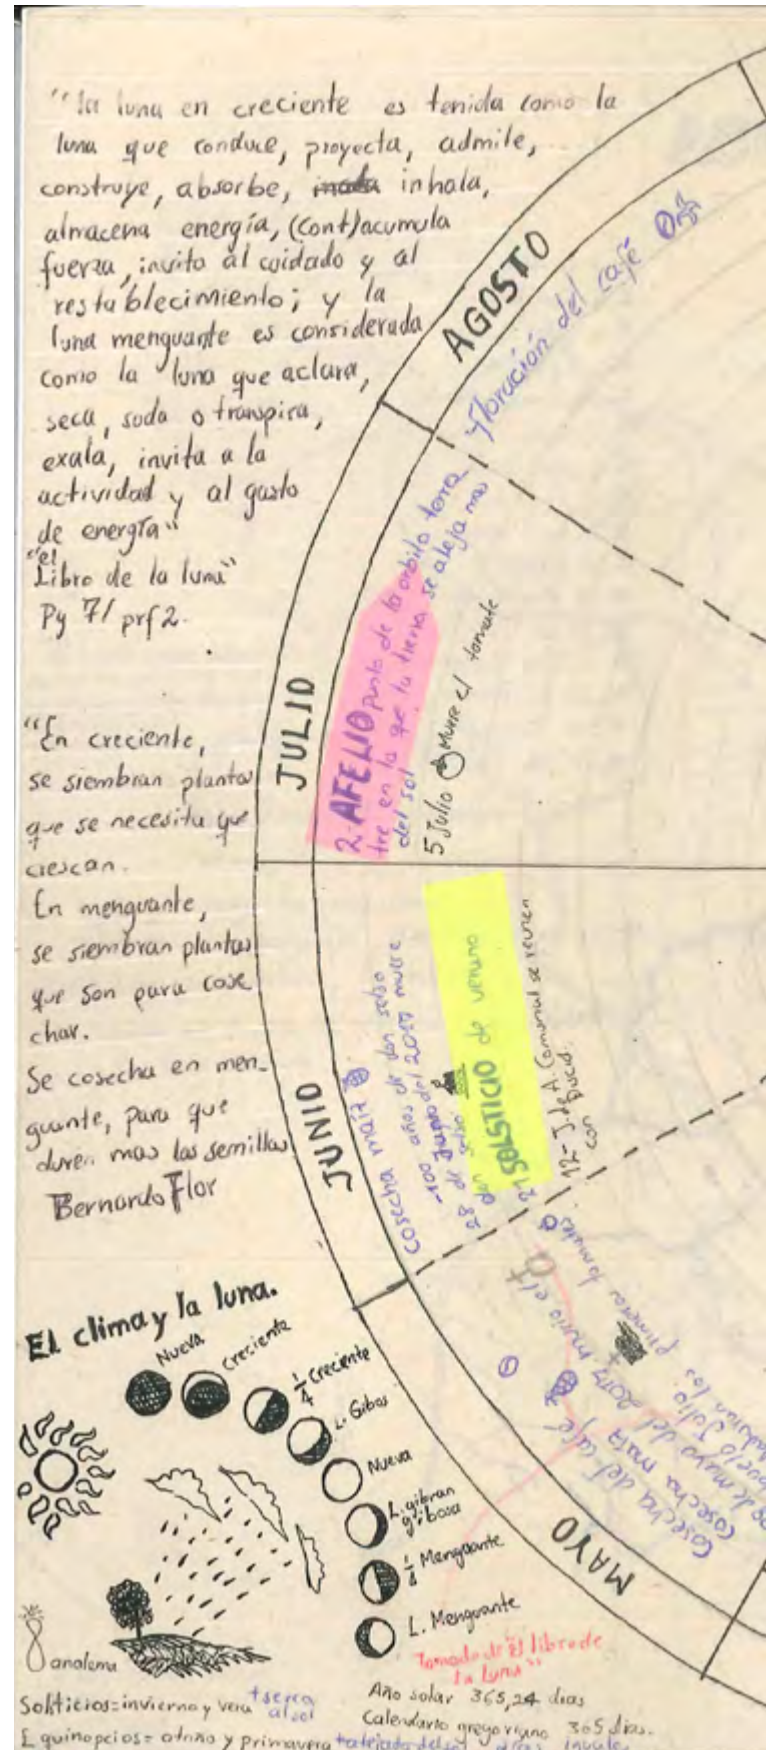 "la luna en creciente es tenida como la
luna que conduce, proyecta, admite,
construye, absorbe, inhala,
almacena energía, (cont)acumula
fuerza, invita al cuidado y al
restablecimiento; y la
luna menguante es considerada
como la luna que aclara,
seca, suda o transpira,
exala, invita a la
actividad y al gasto
de energía"
"el
Libro de la luna"
Pg 7/ prf 2.
"En creciente,
se siembran plantas
que se necesita que
crescan.
En menguante,
se siembran plantas
que son para cose
char.
Se cosecha en men-
guante, para que
duren mas las semillas
Bernardo Flor
AGOSTO
Floración del café
JULIO
2. AFELIO punto de la orbita terres
tre, en la que la tierra se aleja mas
del sol
5 Julio Muere el tomate
JUNIO
Cosecha maíz
-100 años de don
28 de del 2017 muere
don
21 SOLSTICIO de verano
12- J de A Comunal se reunen
con
MAYO
Cosecha del café
cosecha maíz
de mayo del 2017 murio el
abuelo Julio.
maduran los primeros tomates.
El clima y la luna.
Nueva
Creciente
1/4 Creciente
L. Gibos
Nueva
L. gibran
gibosa
1/4 Menguante
L. Menguante
Tomado de "El libro de
la luna"
analema
Solsticios=invierno y vera + serca
al sol
Equinopcios= otoño y primavera + alejado del sol
Año solar 365,24 dias
Calendario gregoriano 365 dias.
iguales